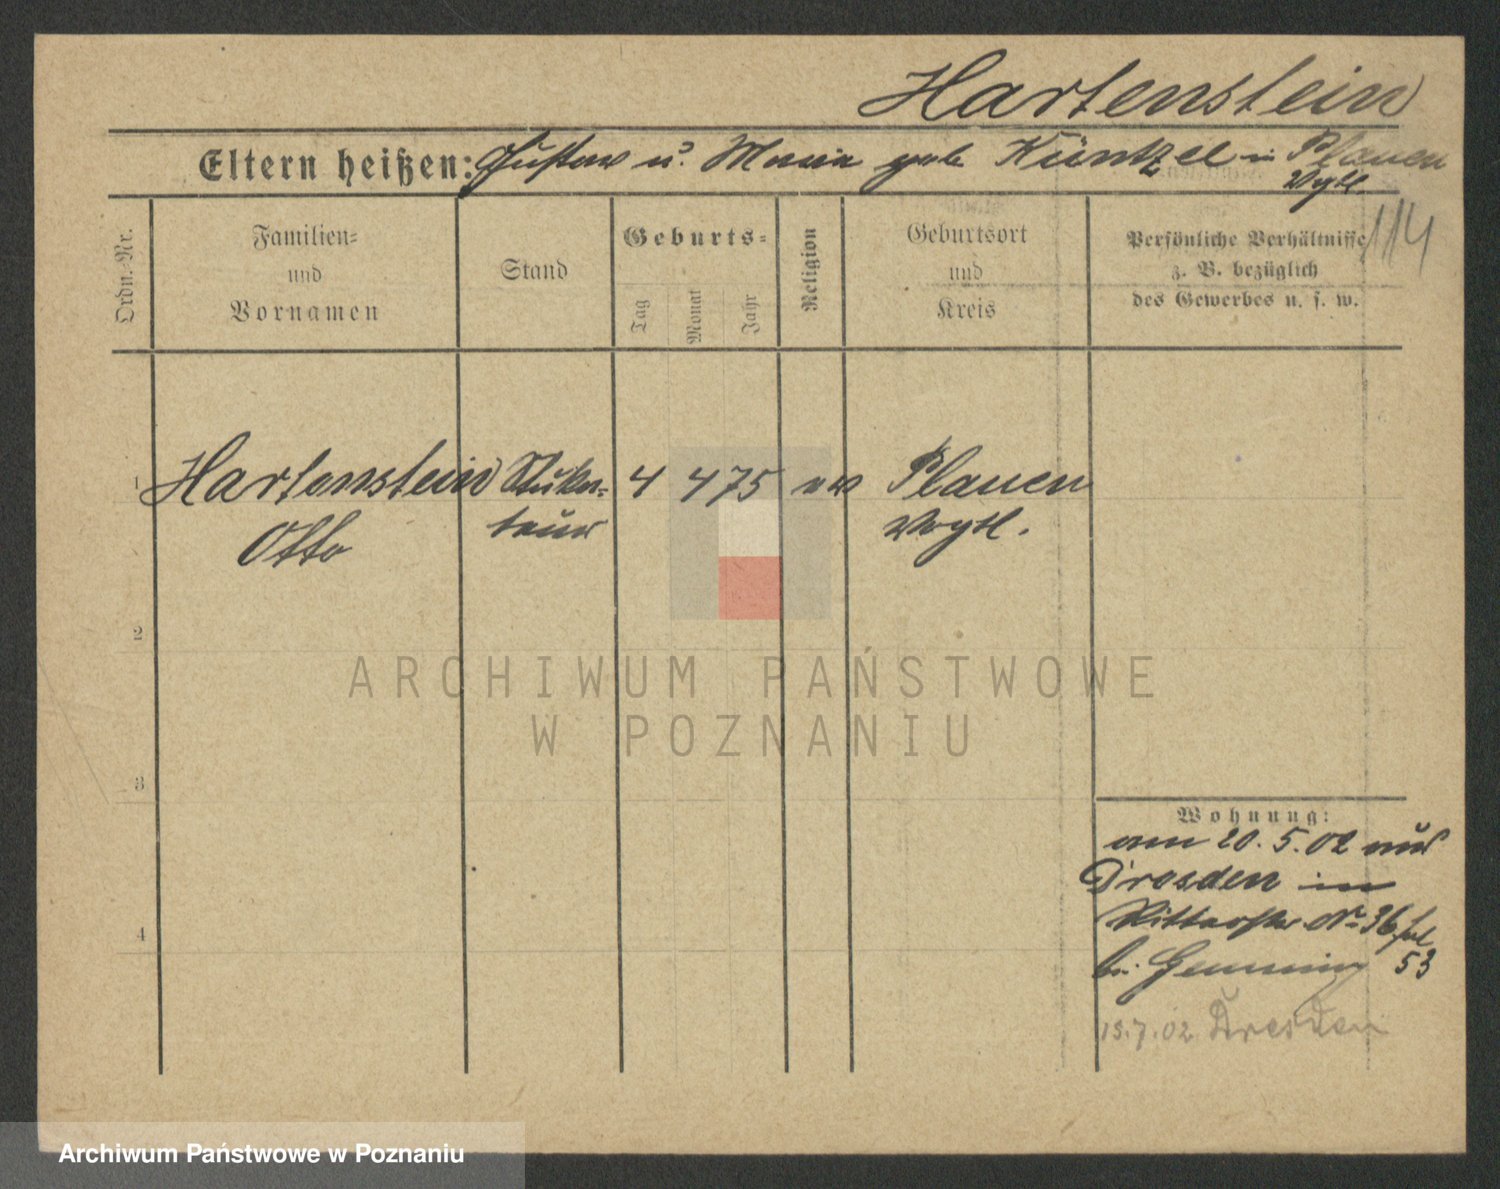 Hartenstein
Eltern heißen: Gustav u. Maria geb Küntzel in Plauen
Vgtl
114
Ordn. Nr.
Familien-
und
Vornamen
Stand
Geburts-
Tag
Monat
Jahr
Religion
Geburtsort
und
Kreis
Persönliche Verhältnisse
z. B. bezüglich
des Gewerbes u. s. w.
1
Hartenstein Stuka- 4 4 75 ev Plauen
Otto teur Vogtl.
2
ARCHIWUM PAŃSTWOWE
W POZNANIU
3
Wohnung:
am 20. 5. 02 aus
Dresden in
Ritterstr No 36
bei 53
4
13.7.02 Dresden
Archiwum Państwowe w Poznaniu